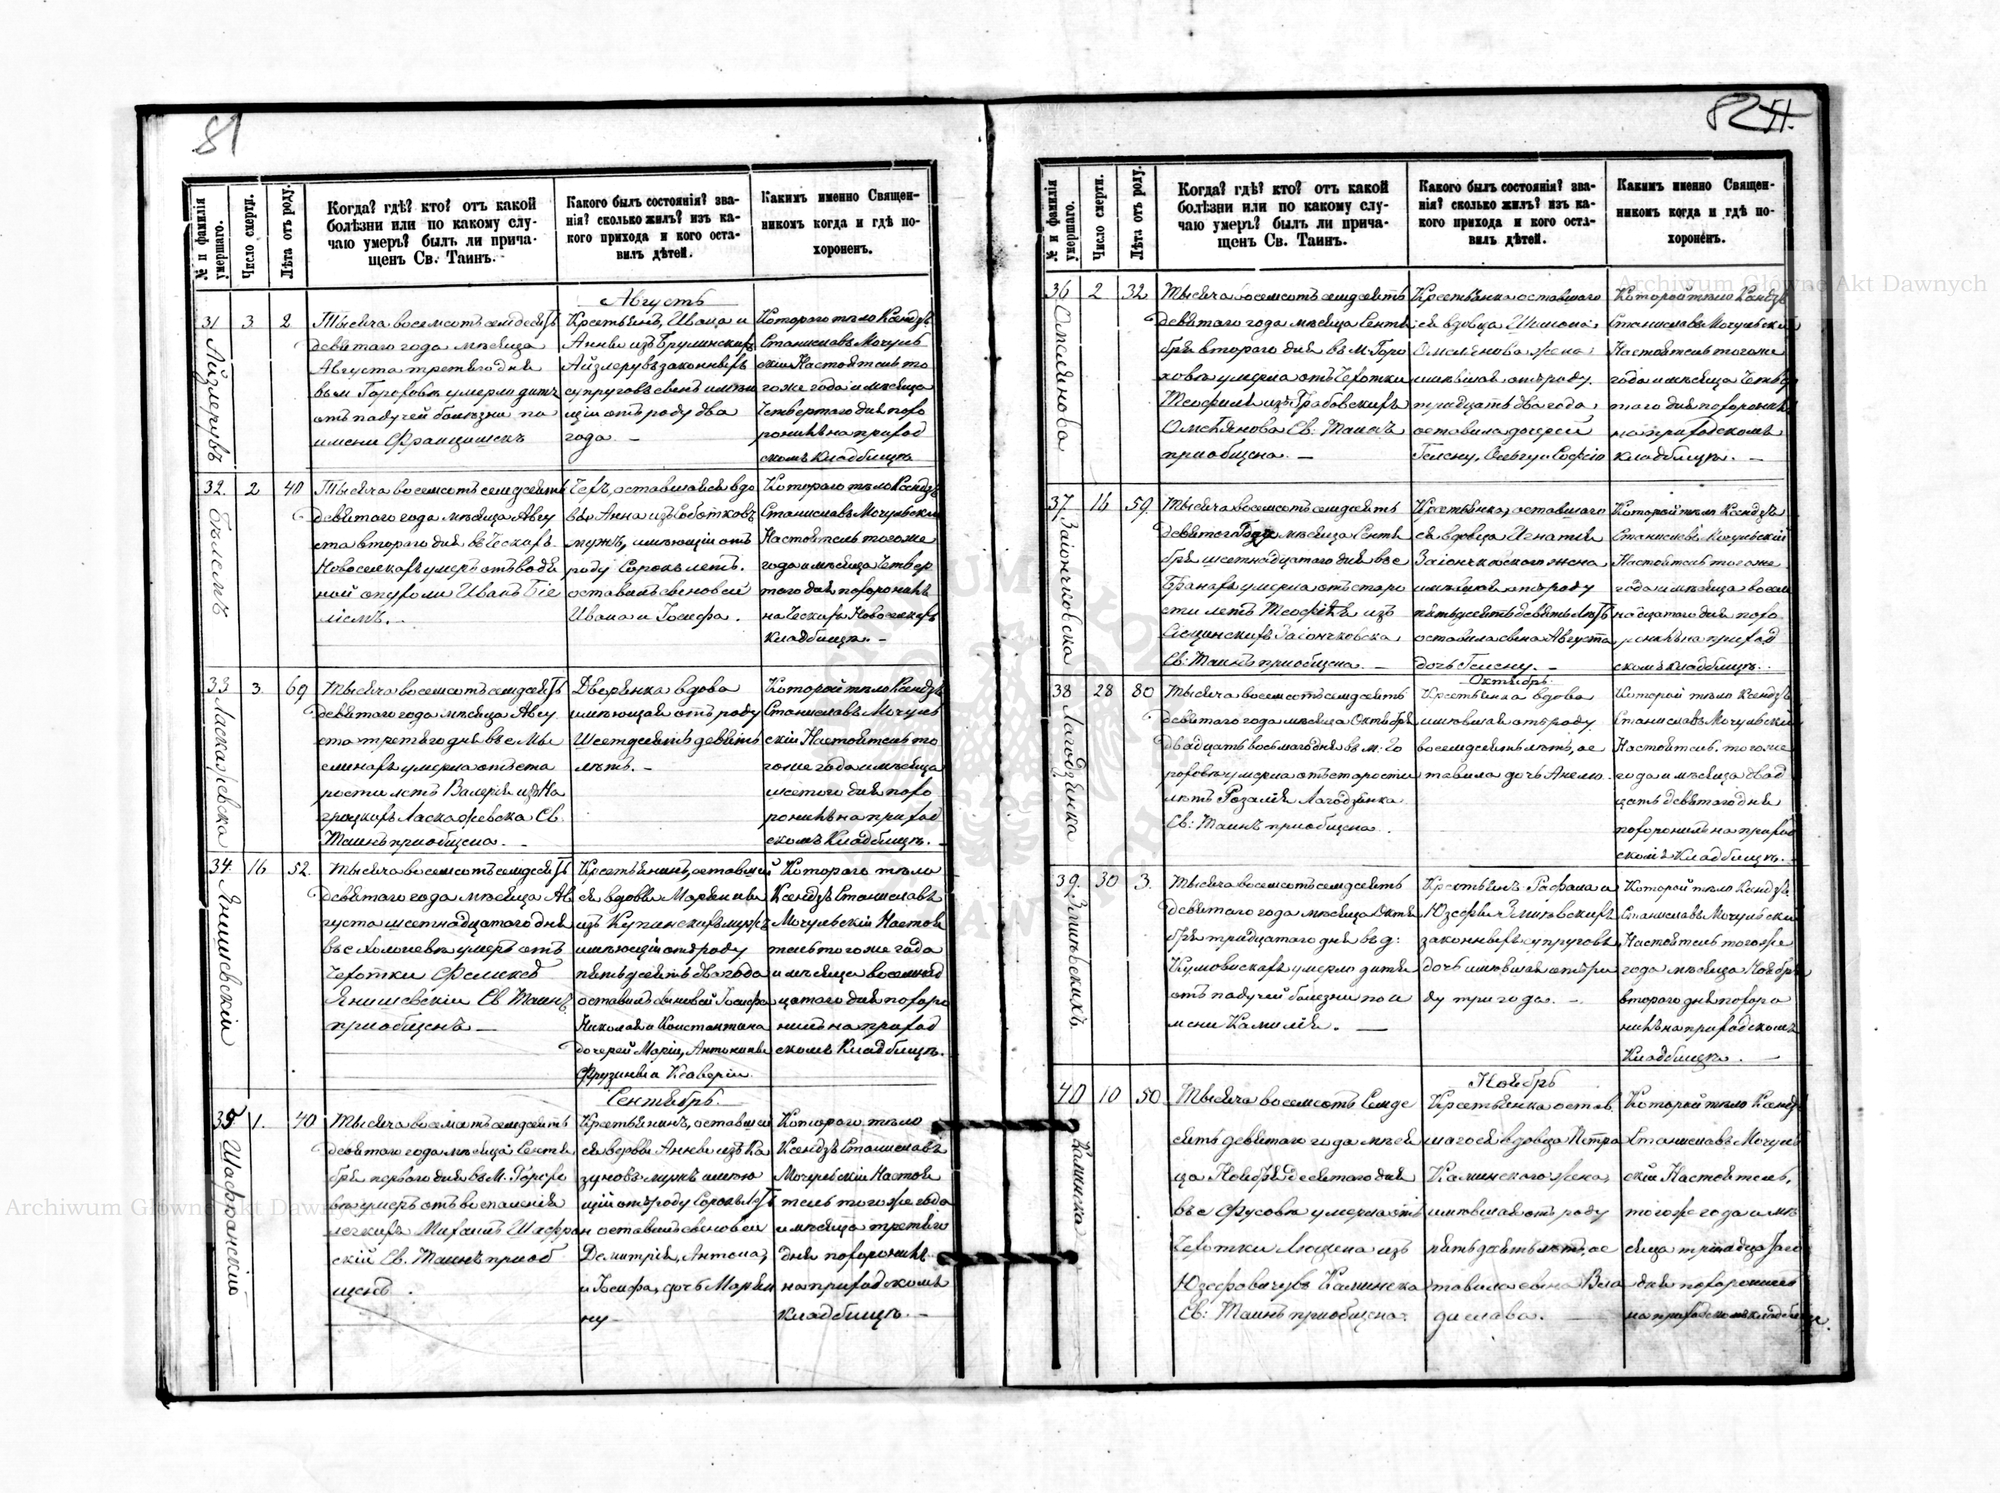 81
№ и фамилія умершаго.
Число смерти.
Лѣта отъ роду.
Когда? гдѣ? кто? отъ какой
болѣзни или по какому слу-
чаю умеръ? былъ ли прича-
щенъ Св. Таинъ.
Какого былъ состоянія? зва-
нія? сколько жилъ? изъ ка-
кого прихода и кого оста-
вилъ дѣтей.
Какимъ именно Священ-
никомъ когда и гдѣ по-
хороненъ.
Августъ
31 3 2
Айзлерувъ
Тысяча восемсотъ семдесятъ
девятого года мѣсяца
Августа третяго дня
въ м Горохове умерло дитя
отъ падучей болѣзни по
имени Францишекъ
Крестьянъ, Ивана и
Анны изъ Брулинскихъ
Айзлерувъ законныхъ
супруговъ сынъ имею
щій отъ роду два
года. —
Которого тѣло Ксендзъ
Станиславъ Мочуль
скій Настоятель то
гоже года и мѣсяца
четвертого дня похо
ронилъ на приход
скомъ Кладбищѣ
32. 2 40
Бѣлемъ
Тысяча восемсотъ семдесятъ
девятого года мѣсяца Авгу
ста второго дня въ Ческихъ
Новоселкахъ умеръ отъ водя
ной опухоли Иванъ Біе
лемъ. —
Чехъ, оставшейся вдо
вы Анна изъ Соботковъ
мужъ, имеющій отъ
роду Сорокъ летъ.
оставилъ сыновей
Ивана и Іосифа.
Которого тѣло Ксендзъ
Станиславъ Мочульскій
Настоятель тогоже
года и мѣсяца Четвер
того дня похоронилъ
на Ческихъ Новоселкахъ
Кладбищѣ. —
33 3. 69
Ласкажевска
Тысяча восемсотъ семдесятъ
девятого года мѣсяца Авгу
ста третяго дня въ с Мы
слинахъ умерла отъ ста
рости летъ Валерія изъ На
грацкихъ Ласкажевска Св.
Таинъ приобщена. —
Дворянка вдова
имеющая отъ роду
Шестдесятъ девять
лѣтъ. —
Которой тѣло Ксендзъ
Станиславъ Мочуль
скій Настоятель то
гоже года и мѣсяца
шестого дня похо
ронилъ на приход
скомъ Кладбищѣ. —
34. 16 52.
Янишевскій
Тысяча восемсотъ семдесятъ
девятого года мѣсяца Ав
густа шестнадцатого дня
въ с Холоневѣ умеръ отъ
чехотки Феликсъ
Янишевскій Св Таинъ
приобщенъ —
Крестьянинъ, оставшей
ся вдовы Марьянны
изъ Купинскихъ мужъ
имеющій отъ роду
пятьдесятъ два года
оставилъ сыновей Іосифа
Николая и Константина
дочерей Марію, Антонину
Фрузину и Ксаверію
Которого тѣло
Ксендзъ Станиславъ
Мочульскій Настоя
тель тогоже года
и мѣсяца восемнад
цатого дня похоро
нилъ на приход
скомъ Кладбищѣ.
Сентябрь.
35 1. 40
Шафранскій
Тысяча восемсотъ семдесятъ
девятого года мѣсяца Сентя
бря первого дня въ М. Горохо
ве умеръ отъ воспаленія
легкихъ Михаилъ Шафран
скій Св. Таинъ приоб
щенъ.
Крестьянинъ, оставшей
ся вдовы Анны изъ Ка
зуновъ мужъ имею
щій отъ роду Сорокъ летъ
оставилъ сыновей
Демитрія, Антона,
и Іосифа, дочь Марьян
ну —
Которого тѣло
Ксендзъ Станиславъ
Мочульскій Настоя
тель тогоже года
и мѣсяца третяго
дня похоронилъ
на приходскомъ
Кладбищѣ. —
82
№ и фамилія умершаго.
Число смерти.
Лѣта отъ роду.
Когда? гдѣ? кто? отъ какой
болѣзни или по какому слу-
чаю умеръ? былъ ли прича-
щенъ Св. Таинъ.
Какого былъ состоянія? зва-
нія? сколько жилъ? изъ ка-
кого прихода и кого оста-
вилъ дѣтей.
Какимъ именно Священ-
никомъ когда и гдѣ по-
хороненъ.
36 2 32
Омельянова
Тысяча восемсотъ семдесятъ
девятого года мѣсяца Сентя
бря второго дня въ м. Горо
ховѣ умерла отъ Чехотки
Теофиля изъ Грабовскихъ
Омельянова Св. Таинъ
приобщена. —
Крестьянка оставшаго
ся вдовца Шимона
Омельянова жена
имѣвшая отъ роду
тридцать два года
оставила дочерей
Гелену, Ольгу и Софію
Которой тѣло Ксендзъ
Станиславъ Мочульскій
Настоятель тогоже
года и мѣсяца Четвер
того дня похоронилъ
на приходскомъ
кладбищѣ. —
37. 16 59.
Заіончковска
Тысяча восемсотъ семдесятъ
девятого года мѣсяца Сентя
бря шестнадцатого дня въ с
Бранахъ умерла отъ старо
сти летъ Теофиля изъ
Сѣцинскихъ Заіончковска
Св: Таинъ приобщена. —
Крестьянка, оставшаго
ся вдовца Игнатія
Заіончковского жена
имѣвшая отъ роду
пятьдесятъ девять лѣтъ
оставила сына Августа
дочь Гелену. —
Которой тѣло Ксендзъ
Станиславъ Мочульскій
Настоятель тогоже
года и мѣсяца восем
надцатого дня похо
ронилъ на приход
скомъ кладбищѣ.
Октябрь.
38 28 80
Лагодзинка
Тысяча восемсотъ семдесятъ
девятого года мѣсяца Октября
двадцать восьмаго дня въ м. Го
роховѣ умерла отъ старости
лѣтъ Розалія Лагодзинка
Св: Таинъ приобщена.
Крестьянка вдова
имѣвшая отъ роду
восемдесятъ лѣтъ, ос
тавила дочь Анелю.
Которой тѣло Ксендзъ
Станиславъ Мочульскій
Настоятель. тогоже
года и мѣсяца двад
цать девятаго дня
похоронилъ на приход
скомъ Кладбищѣ. —
39. 30 3.
Тысяча восемсотъ семдесятъ
девятого года мѣсяца Октя
бря тридцатого дня въ д:
умерло дитя
отъ падучей болезни по и
мени Камилія. —
Крестьянъ Рафала и
Юзефы
законныхъ супруговъ
дочь имѣвшая отъ ро
ду три года. —
Которой тѣло Ксендзъ
Станиславъ Мочульскій
Настоятель тогоже
года мѣсяца Ноября
второго дня похоро
нилъ на приходскомъ
Кладбищѣ. —
Ноябрь
40 10 50
Каминска
Тысяча восемсотъ Семде
сятъ девятаго года мѣся
ца Ноября Десятого дня
въ с Фусовѣ умерла отъ
Чехотки Люцина изъ
Юзефовичувъ Каминска
Св: Таинъ приобщена.
Крестьянка остав
шагося вдовца Петра
Каминского жена,
имѣвшая отъ роду
пятьдесятъ лѣтъ, ос
тавила сына Вла
дислава. —
Которой тѣло Ксендзъ
Станиславъ Мочуль
скій Настоятель,
тогоже года и мѣ
сяца тринадцатаго
дня похоронилъ
на приходскомъ кладбище.
Archiwum Główne Akt Dawnych
Archiwum Główne Akt Dawnych